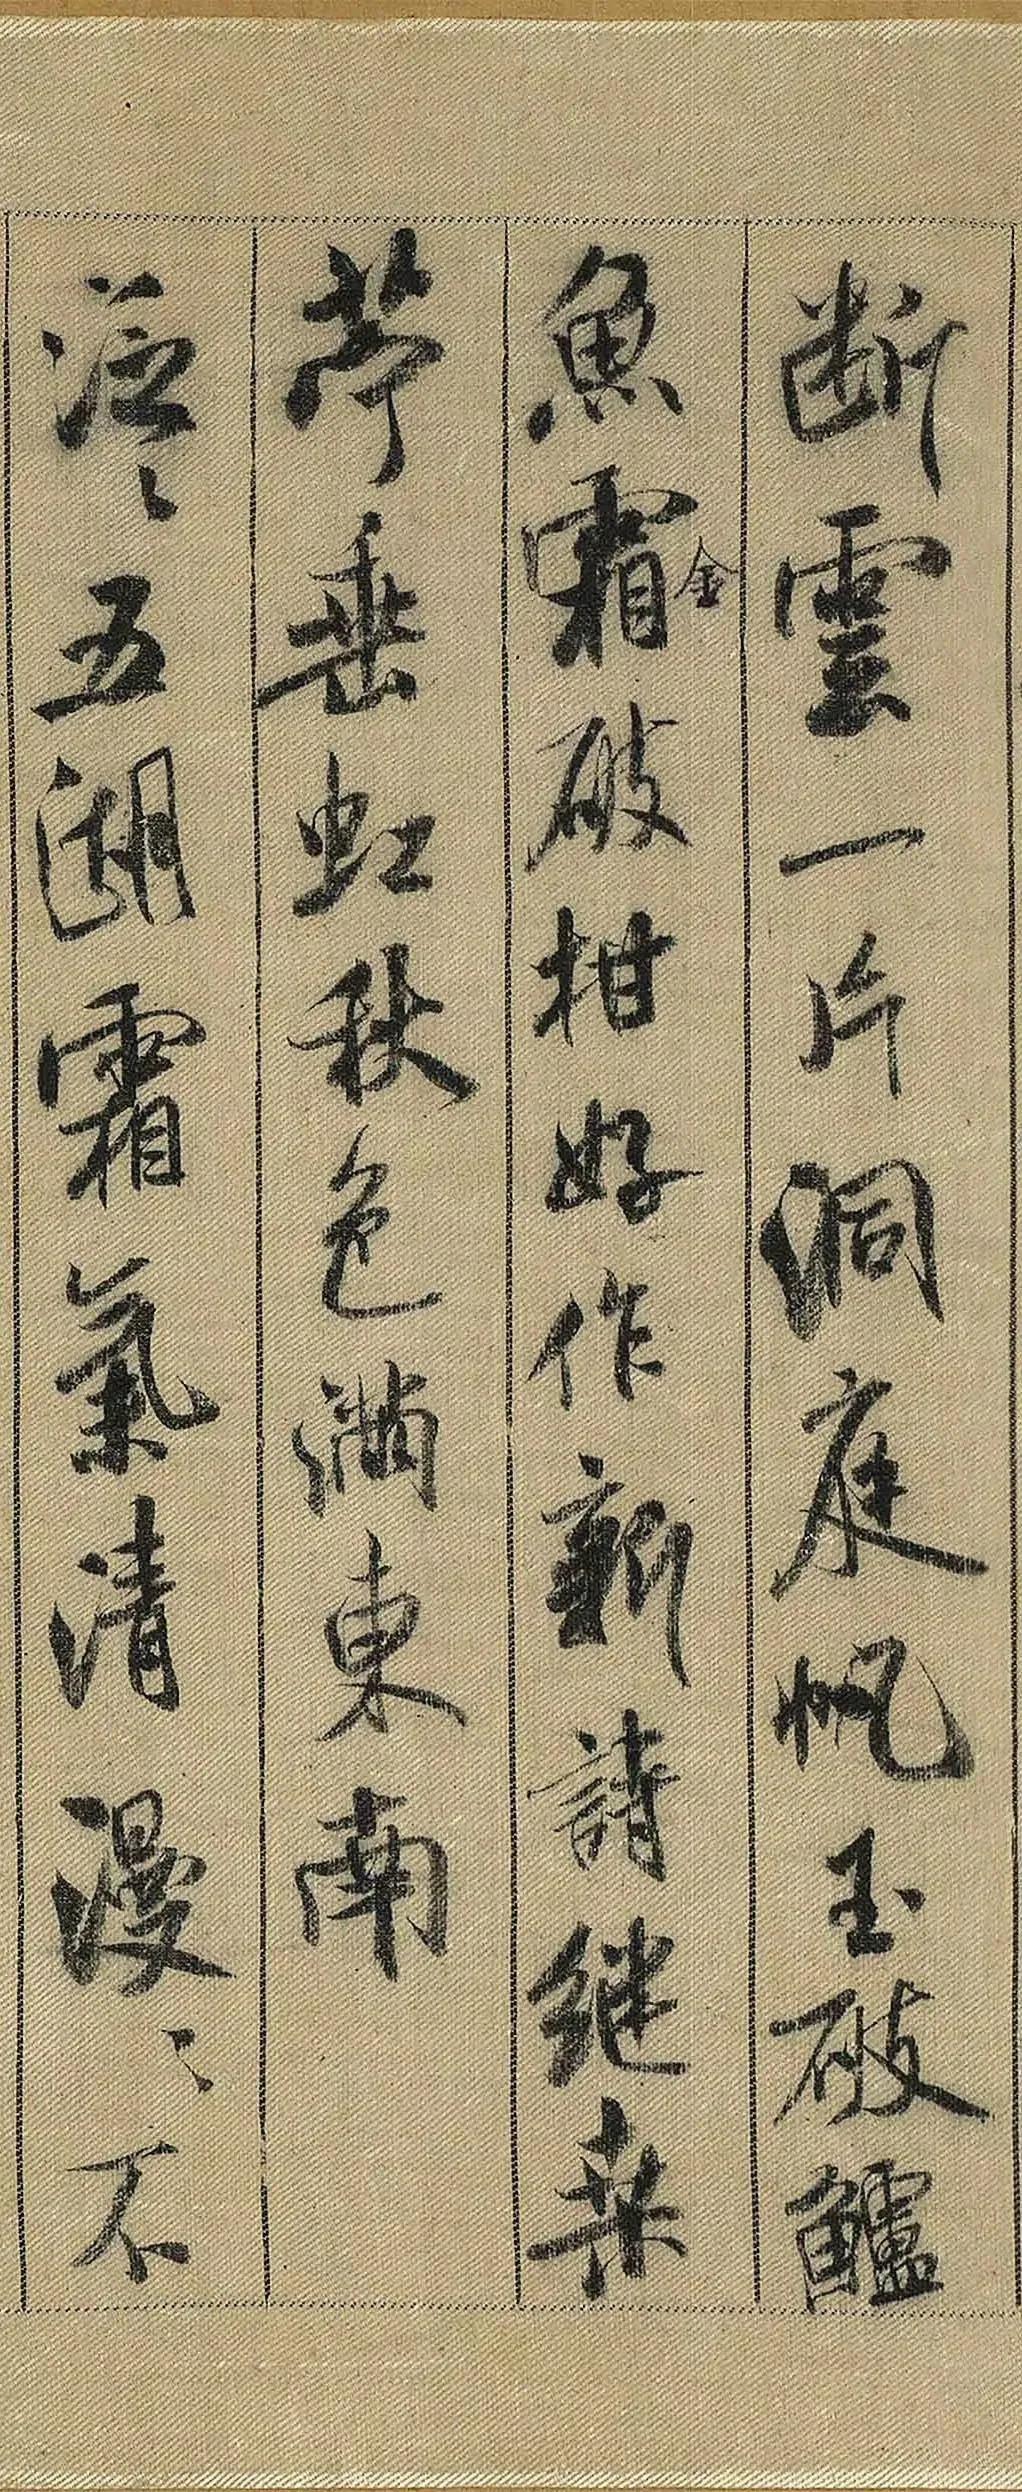 断雲一片洞庭帆玉破鱸
魚霜金破柑好作新詩继桑
苧垂虹秋色滿東南
泛〻五湖霜氣清漫〻不